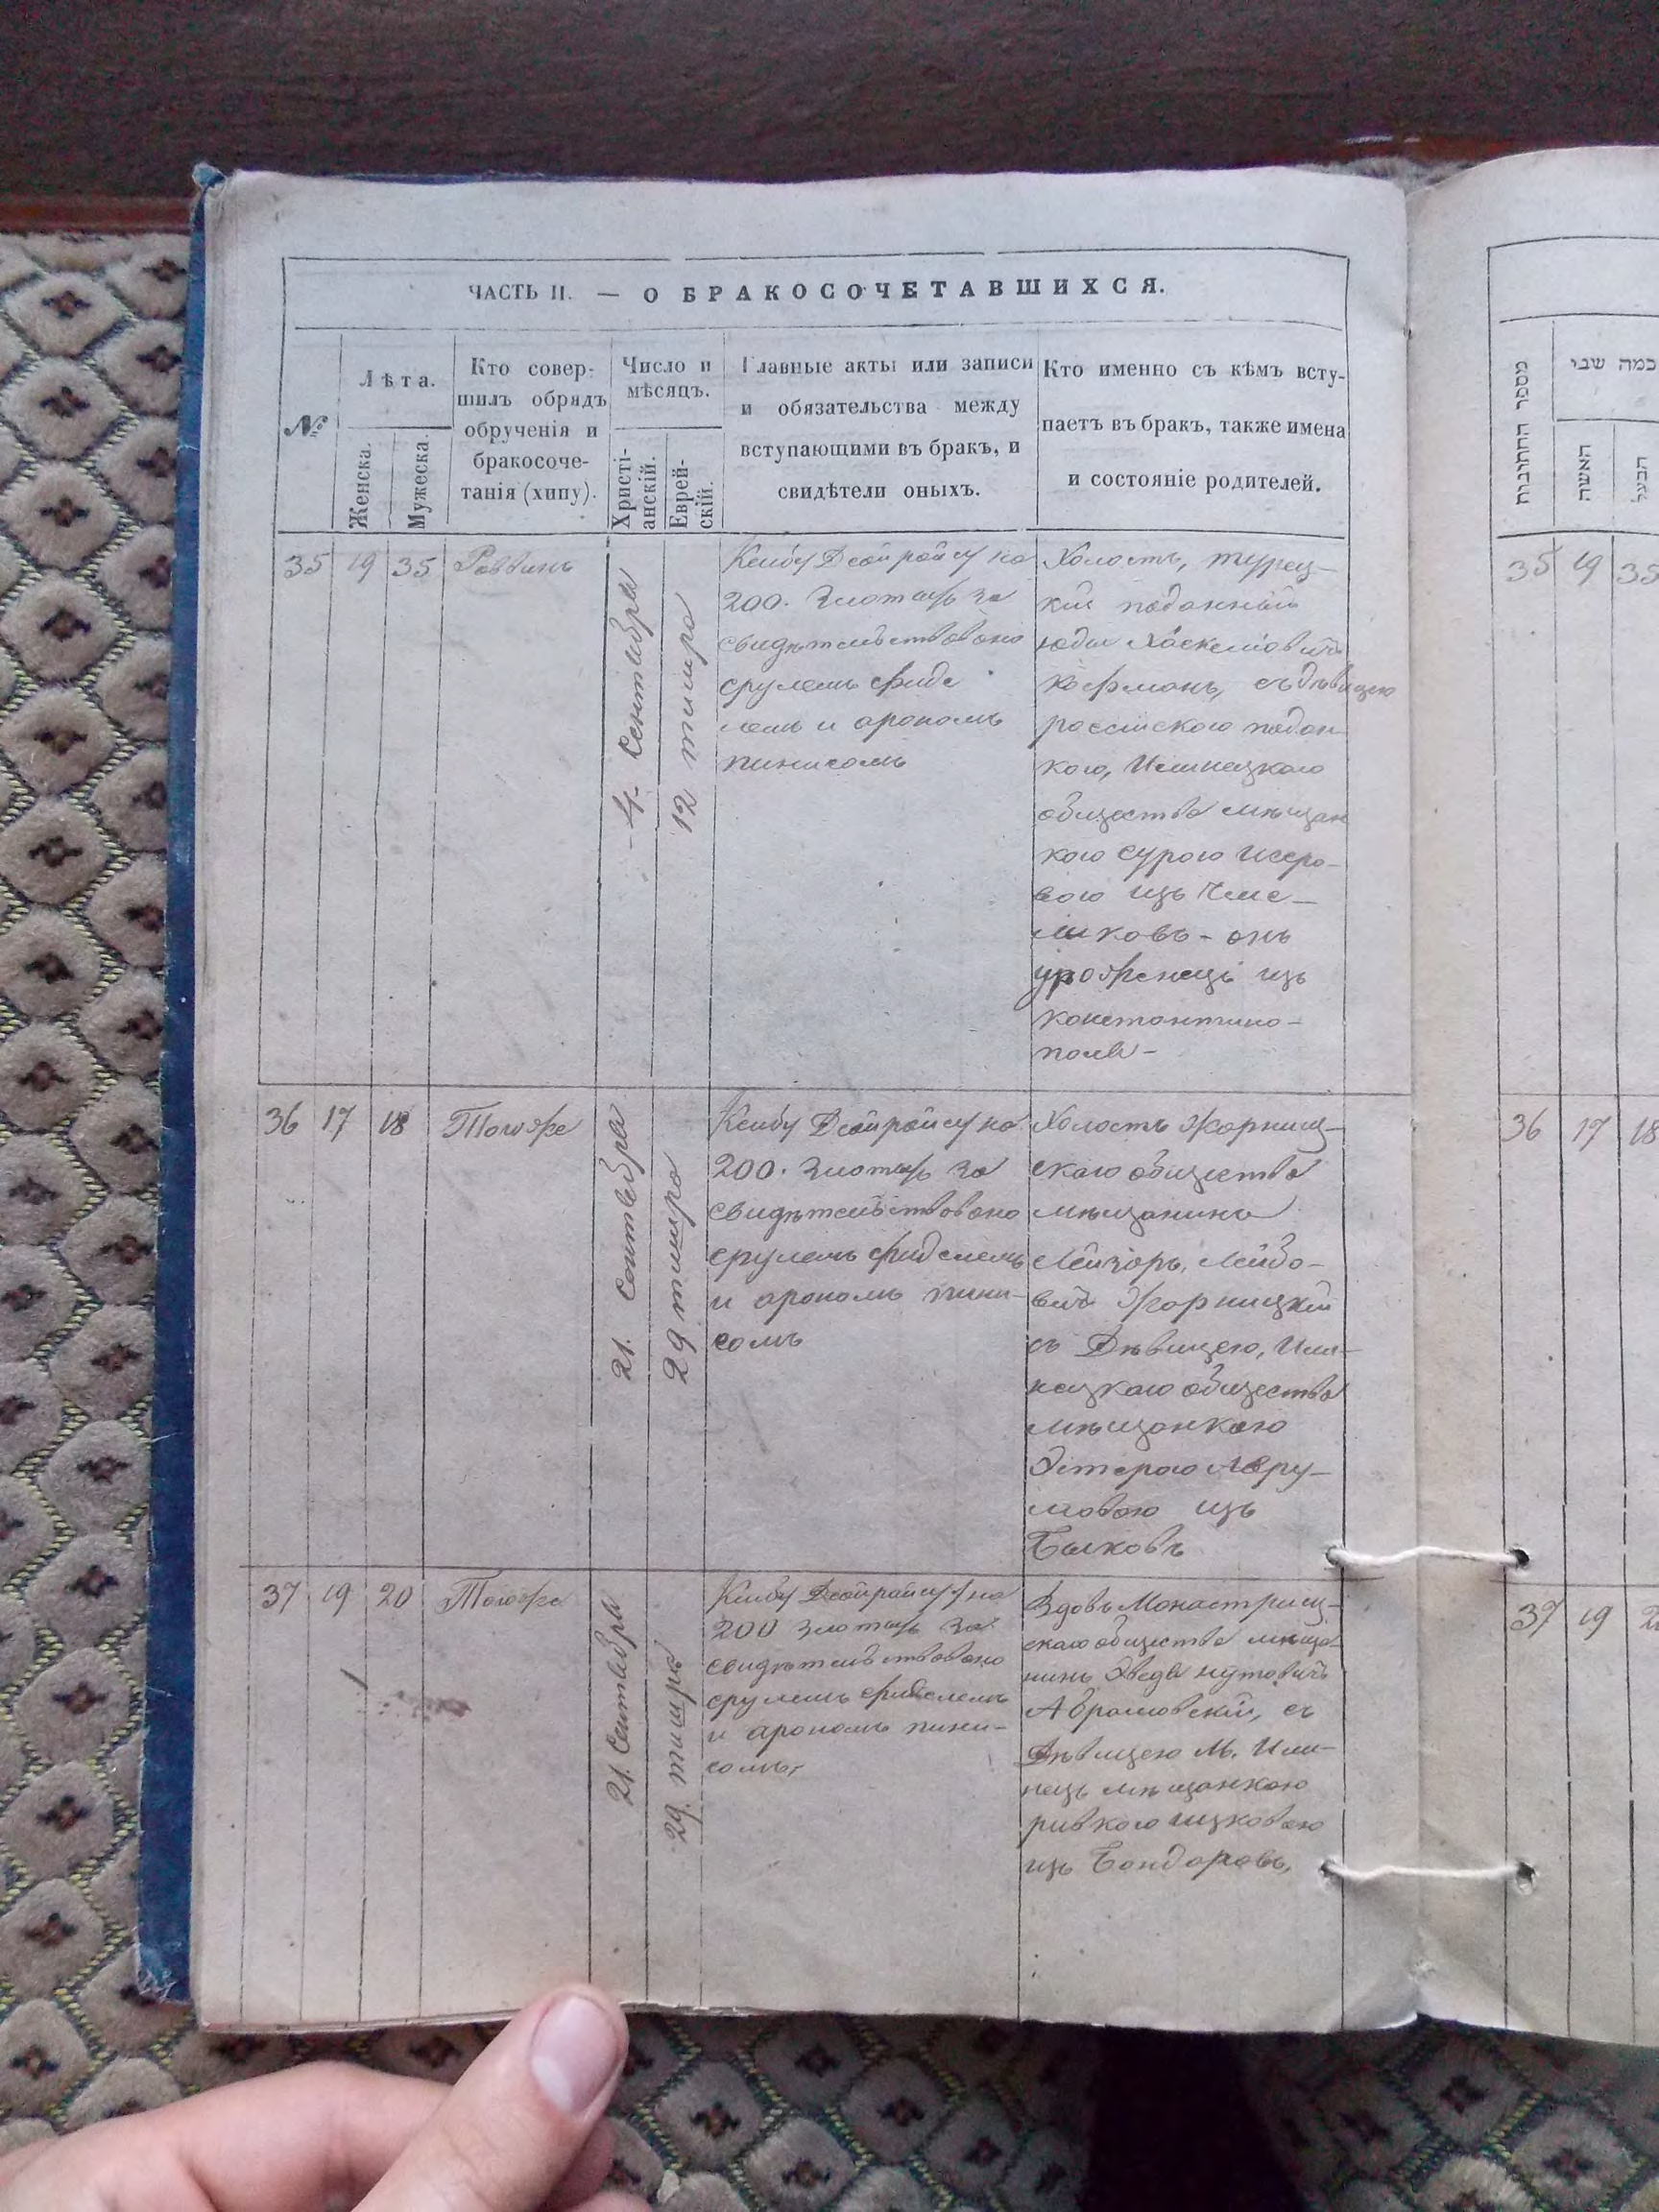 ЧАСТЬ II. — О БРАКОСОЧЕТАВШИХСЯ.
№
Лѣта.
Женска.
Мужеска.
Кто совер-
шилъ обрядъ
обрученія и
бракосоче-
танія (хипу).
Число и
мѣсяцъ.
Христі-
анскій.
Еврей-
скій.
Главные акты или записи
и обязательства между
вступающими въ бракъ, и
свидѣтели оныхъ.
Кто именно съ кѣмъ всту-
паетъ въ бракъ, также имена
и состояніе родителей.
35 19 35 Раввинъ
4. Сентября
12 тишра
200. Злотыхъ За
свидѣтельствовано
срулемъ фиде
лемъ и арономъ
пинисомъ
Холостъ, турец-
кій поданный
кофманъ, съ дѣвицею
россійскою подан
кою, Илинецкого
общества мѣщан
кою сурою
вою изъ
онъ
уроженецъ изъ
константино-
поля-
36 17 18 Тотже
21. Сентября
29 тишра
200. Злотыхъ За
свидѣтельствовано
срулемъ фиделемъ
и арономъ пини-
сомъ
Холостъ Жорнищ-
скаго общества
мѣщанинъ
Лейзоръ, Лейбо-
вичъ Жорницкій
съ Дѣвицею, Или-
нецкаго общества
мѣщанкою
Эстерою Авру-
мовою изъ
Быковъ
37 19 20 Тотже
21. Сентября
29. тишра
200 злотыхъ За
свидѣтельствовано
срулемъ фиделемъ
и арономъ пини-
сомъ,
Вдовъ Монастрищ-
скаго общества мѣща-
нинъ нутовичъ
Аврамовскій, съ
Дѣвицею М. Или-
нецъ мѣщанкою
ривкою ицковою
изъ Бондаровъ,
מספר החתונות
כמה שני
האשה
הבעל
35 19 35
36 17 18
37 19